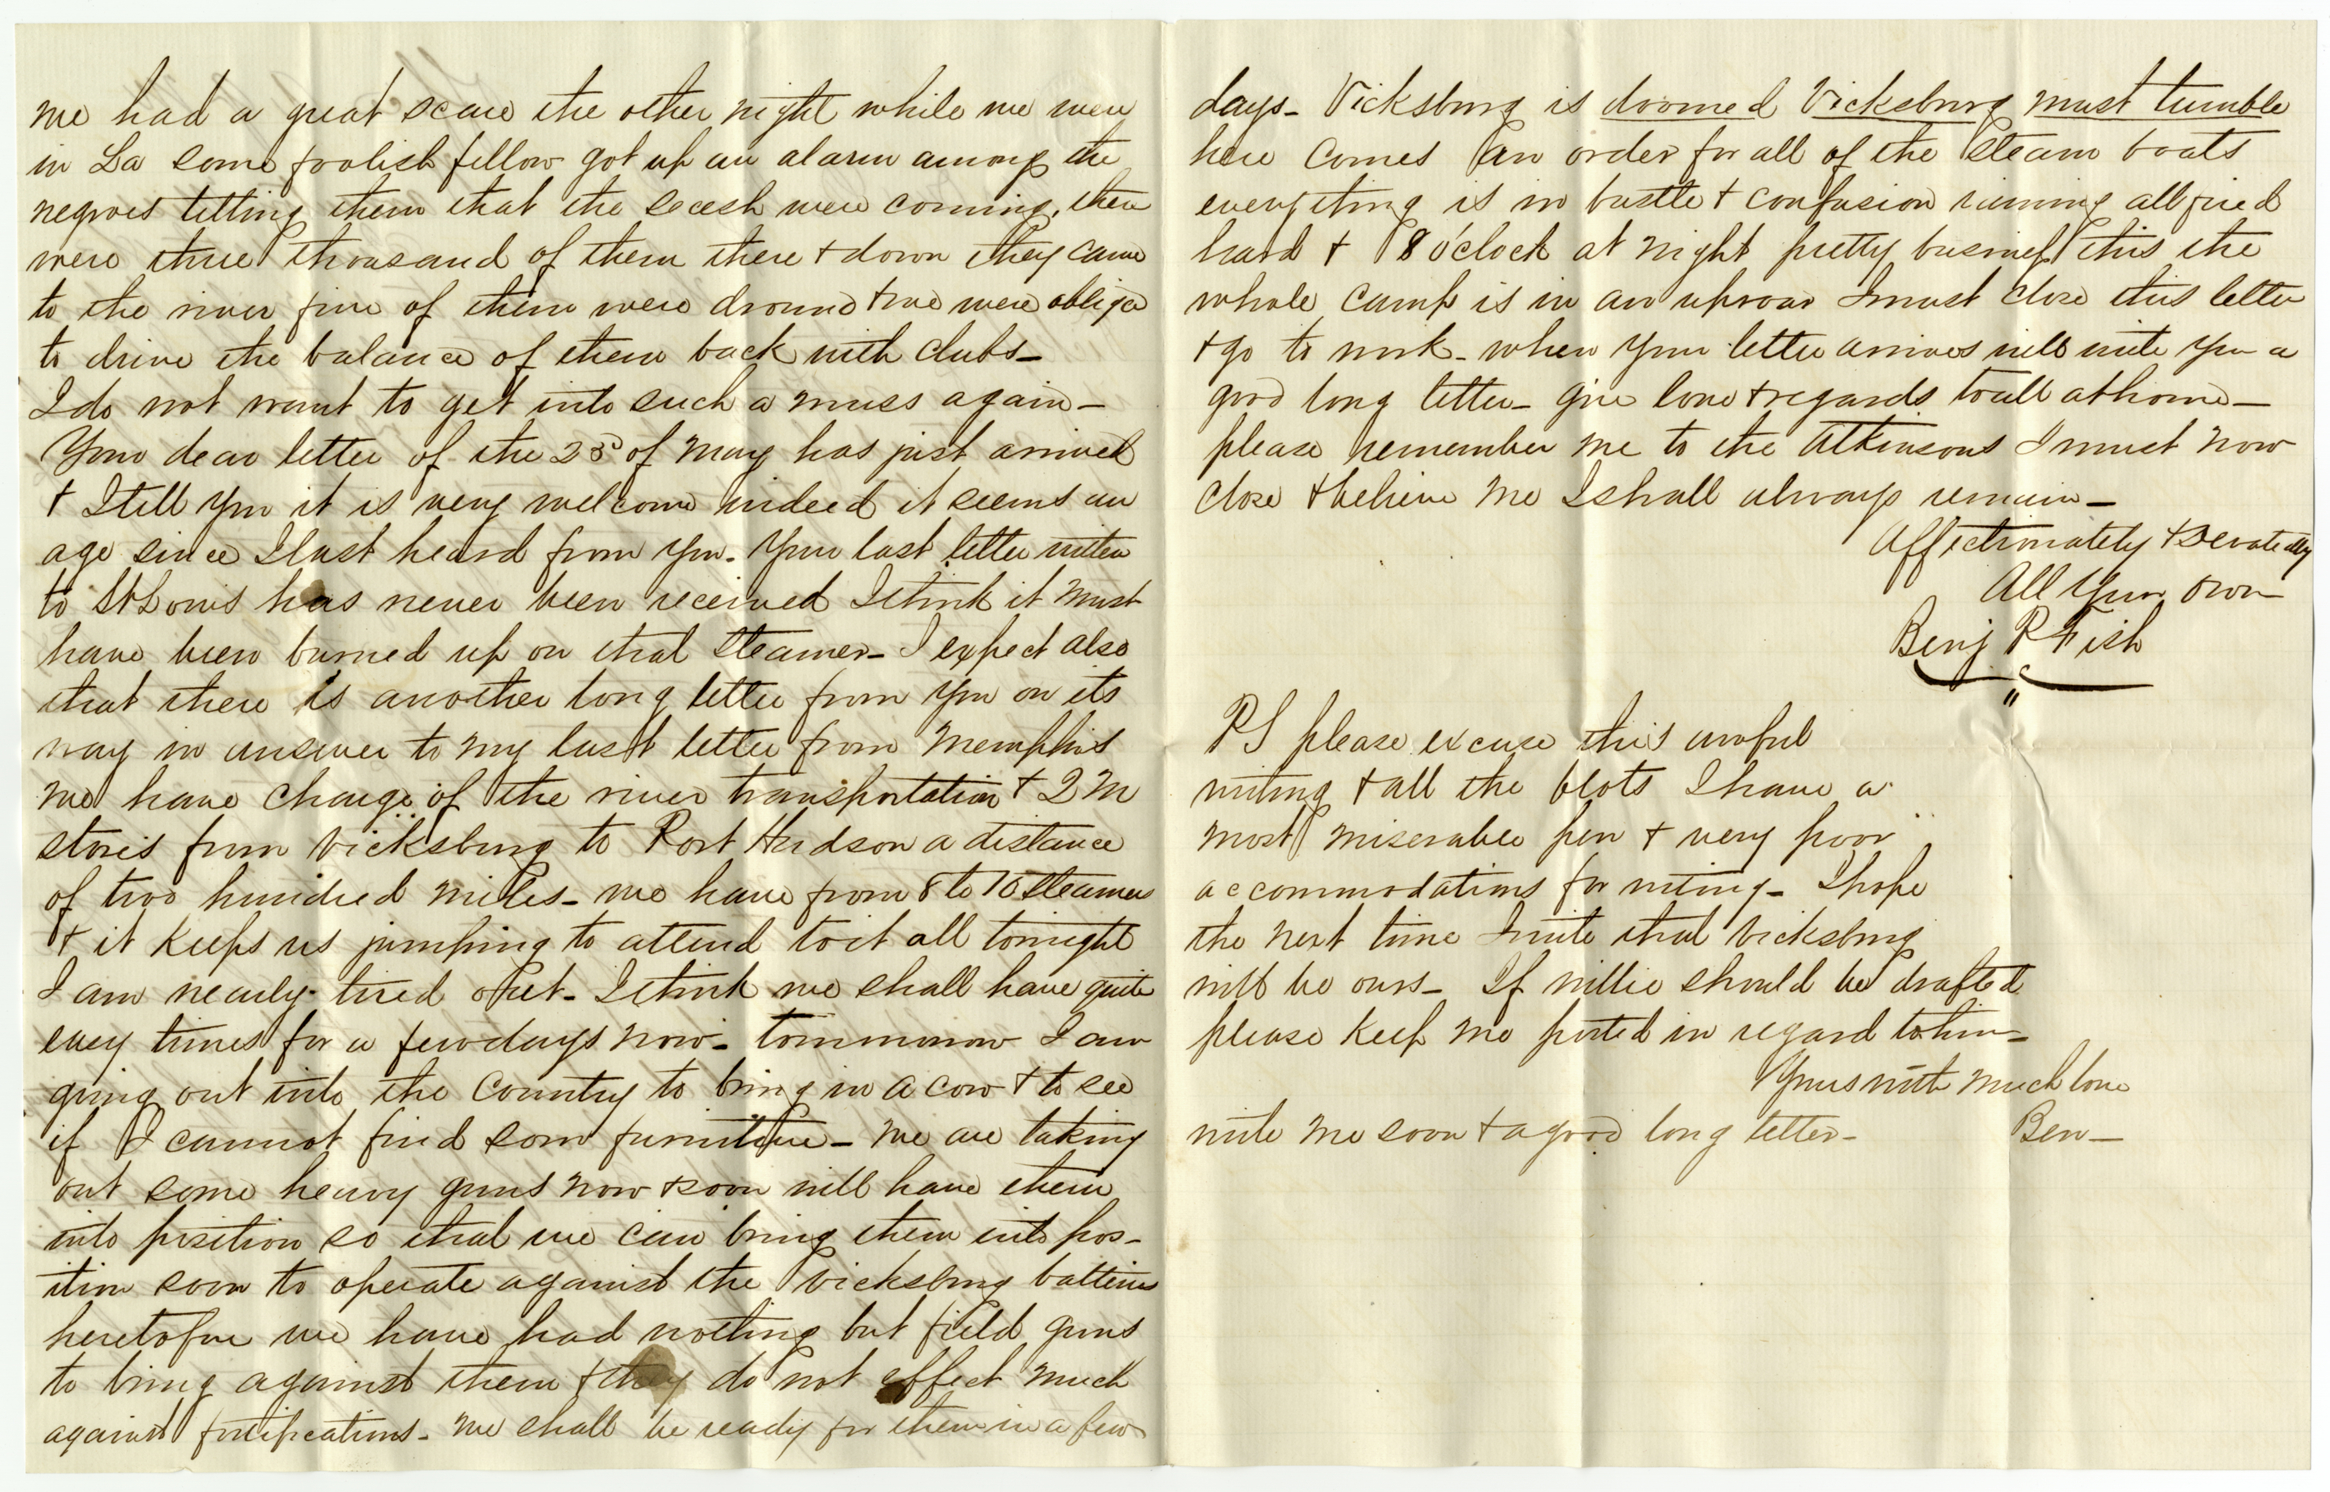 we had a great scare the other night while we were
in La some foolish fellow got up an alarm among the
negroes telling them that the secesh were coming, there
were three thousand of them there & down they came
to the river five of them were dround & we were oblige
to drive the balance of them back with clubs—
I do not want to get into such a muss again—
Your dear letter of the 23d of May has just arrived
& I tell you it is very welcome indeed it seems an
age since I last heard from you. Your last letter writen
to St Louis has never been received I think it must
have been burned up on that steamer— I expect also
that there is another long letter from you on its
way in answer to my last letter from Memphis
we have charge of the river transportation & Q M
stores from Vicksburg to Port Hudson a distance
of two hundred miles— we have from 8 to 10 steamers
& it keeps us jumping to attend to it all tonight
I am nearly tired out— I think we shall have quite
easy times for a few days now— tommorrow I am
going out into the country to bring in a cow & to see
if I cannot find som furniture— we are taking
out some heavy guns now & soon will have them
into position so that we can bring them into pos—
ition soon to operate against the Vicksburg batteries
heretofore we have had nothing but field guns
to bring against them & they do not effect much
against fortifications— we shall be ready for them in a few
days— Vicksburg is doomed Vicksburg must tumble
here comes an order for all of the steam boats
everything is in bustle & confusion raining all fired
hard & 8 o'clock at night pretty business this the
whole camp is in an uproar I must close this letter
& go to work— when your letter arrives will write you a
good long letter— give love & regards to all at home—
please remember me to the Atkinsons I must now
close & believe me I shall always remain—
Affectionately & Devotedly
All Your own
Benj P Fish
PS please excuse this awful
writing & all the blots I have a
most miserable pen & very poor
accommodations for writing— I hope
the next time I write that Vicksburg
will be ours— If Willie should be drafted
please keep me posted in regard to him—
Yours with much love
write me soon & a good long letter— Ben—